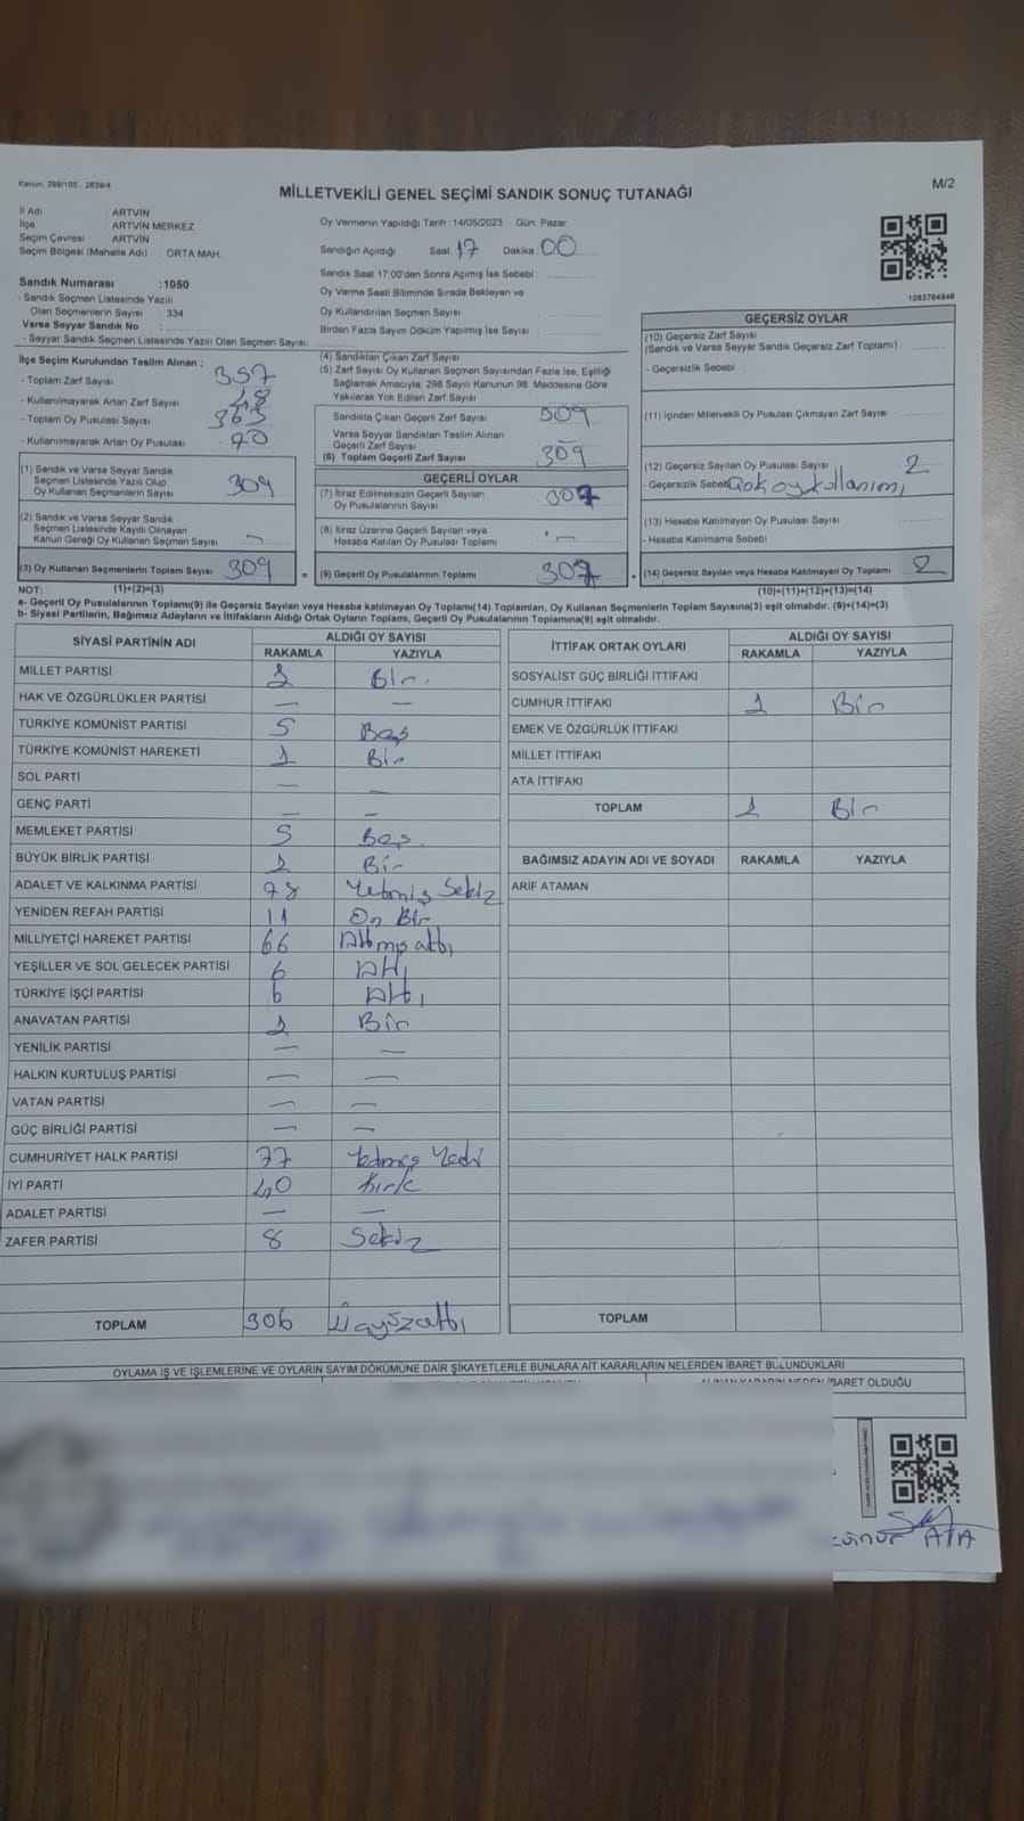 M/2
MİLLETVEKİLİ GENEL SEÇİMİ SANDIK SONUÇ TUTANAĞI
İl Adı ARTVİN
İlçe ARTVİN MERKEZ
Seçim Çevresi ARTVİN
Seçim Bölgesi (Mahalle Adı) ORTA MAH.
Oy Vermenin Yapıldığı Tarih : 14/05/2023 Gün: Pazar
Sandığın Açıldığı Saat 17 Dakika 00
Sandık Saat 17:00'den Sonra Açılmış İse Sebebi
Oy Verme Saati Bitiminde Sırada Bekleyen ve
Oy Kullandırılan Seçmen Sayısı
Birden Fazla Sayım Döküm Yapılmış İse Sayısı
Sandık Numarası : 1050
- Sandık Seçmen Listesinde Yazılı
Olan Seçmenlerin Sayısı : 334
Varsa Seyyar Sandık No :
- Seyyar Sandık Seçmen Listesinde Yazılı Olan Seçmen Sayısı:
İlçe Seçim Kurulundan Teslim Alınan :
- Toplam Zarf Sayısı 357
- Kullanılmayarak Artan Zarf Sayısı 48
- Toplam Oy Pusulası Sayısı
- Kullanılmayarak Artan Oy Pusulası
(1) Sandık ve Varsa Seyyar Sandık
Seçmen Listesinde Yazılı Olup
Oy Kullanan Seçmenlerin Sayısı 309
(2) Sandık ve Varsa Seyyar Sandık
Seçmen Listesinde Kayıtlı Olmayan
Kanun Gereği Oy Kullanan Seçmen Sayısı —
(3) Oy Kullanan Seçmenlerin Toplam Sayısı 309
(4) Sandıktan Çıkan Zarf Sayısı
(5) Zarf Sayısı Oy Kullanan Seçmen Sayısından Fazla İse, Eşitliği
Sağlamak Amacıyla, 298 Sayılı Kanunun 98. Maddesine Göre
Yakılarak Yok Edilen Zarf Sayısı
Sandıkta Çıkan Geçerli Zarf Sayısı 309
Varsa Seyyar Sandıktan Teslim Alınan
Geçerli Zarf Sayısı —
(6) Toplam Geçerli Zarf Sayısı 309
GEÇERLİ OYLAR
(7) İtiraz Edilmeksizin Geçerli Sayılan
Oy Pusulalarının Sayısı 307
(8) İtiraz Üzerine Geçerli Sayılan veya
Hesaba Katılan Oy Pusulası Toplamı —
(9) Geçerli Oy Pusulalarının Toplamı 307
GEÇERSİZ OYLAR
(10) Geçersiz Zarf Sayısı
(Sandık ve Varsa Seyyar Sandık Geçersiz Zarf Toplamı)
- Geçersizlik Sebebi
(11) İçinden Milletvekili Oy Pusulası Çıkmayan Zarf Sayısı
(12) Geçersiz Sayılan Oy Pusulası Sayısı 2
- Geçersizlik Sebebi Çok oy kullanımı
(13) Hesaba Katılmayan Oy Pusulası Sayısı
- Hesaba Katılmama Sebebi
(14) Geçersiz Sayılan veya Hesaba Katılmayan Oy Toplamı 2
NOT: (1)+(2)=(3) (10)+(11)+(12)+(13)=(14)
a- Geçerli Oy Pusulalarının Toplamı(9) ile Geçersiz Sayılan veya Hesaba katılmayan Oy Toplamı(14) Toplamları, Oy Kullanan Seçmenlerin Toplam Sayısına(3) eşit olmalıdır. (9)+(14)=(3)
b- Siyasi Partilerin, Bağımsız Adayların ve İttifakların Aldığı Ortak Oyların Toplamı, Geçerli Oy Pusulalarının Toplamına(9) eşit olmalıdır.
SİYASİ PARTİNİN ADI ALDIĞI OY SAYISI
RAKAMLA YAZIYLA
MİLLET PARTİSİ 1 Bir
HAK VE ÖZGÜRLÜKLER PARTİSİ — —
TÜRKİYE KOMÜNİST PARTİSİ 5 Beş
TÜRKİYE KOMÜNİST HAREKETİ 1 Bir
SOL PARTİ — —
GENÇ PARTİ — —
MEMLEKET PARTİSİ 5 Beş
BÜYÜK BİRLİK PARTİSİ 1 Bir
ADALET VE KALKINMA PARTİSİ 78 Yetmiş Sekiz
YENİDEN REFAH PARTİSİ 11 On Bir
MİLLİYETÇİ HAREKET PARTİSİ 66 Altmış altı
YEŞİLLER VE SOL GELECEK PARTİSİ 6 Altı
TÜRKİYE İŞÇİ PARTİSİ 6 Altı
ANAVATAN PARTİSİ 1 Bir
YENİLİK PARTİSİ — —
HALKIN KURTULUŞ PARTİSİ — —
VATAN PARTİSİ — —
GÜÇ BİRLİĞİ PARTİSİ — —
CUMHURİYET HALK PARTİSİ 77 Yetmiş Yedi
İYİ PARTİ 40 Kırk
ADALET PARTİSİ — —
ZAFER PARTİSİ 8 Sekiz
TOPLAM 306 Üçyüzaltı
İTTİFAK ORTAK OYLARI ALDIĞI OY SAYISI
RAKAMLA YAZIYLA
SOSYALİST GÜÇ BİRLİĞİ İTTİFAKI
CUMHUR İTTİFAKI 1 Bir
EMEK VE ÖZGÜRLÜK İTTİFAKI
MİLLET İTTİFAKI
ATA İTTİFAKI
TOPLAM 1 Bir
BAĞIMSIZ ADAYIN ADI VE SOYADI RAKAMLA YAZIYLA
ARİF ATAMAN
TOPLAM
OYLAMA İŞ VE İŞLEMLERİNE VE OYLARIN SAYIM DÖKÜMÜNE DAİR ŞİKAYETLERLE BUNLARA AİT KARARLARIN NELERDEN İBARET BULUNDUKLARI
İBARET OLDUĞU
ATA